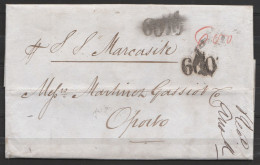 600
pr S. S. Marcasite
600
Messrs Martinez Gassiot & Co
Oporto